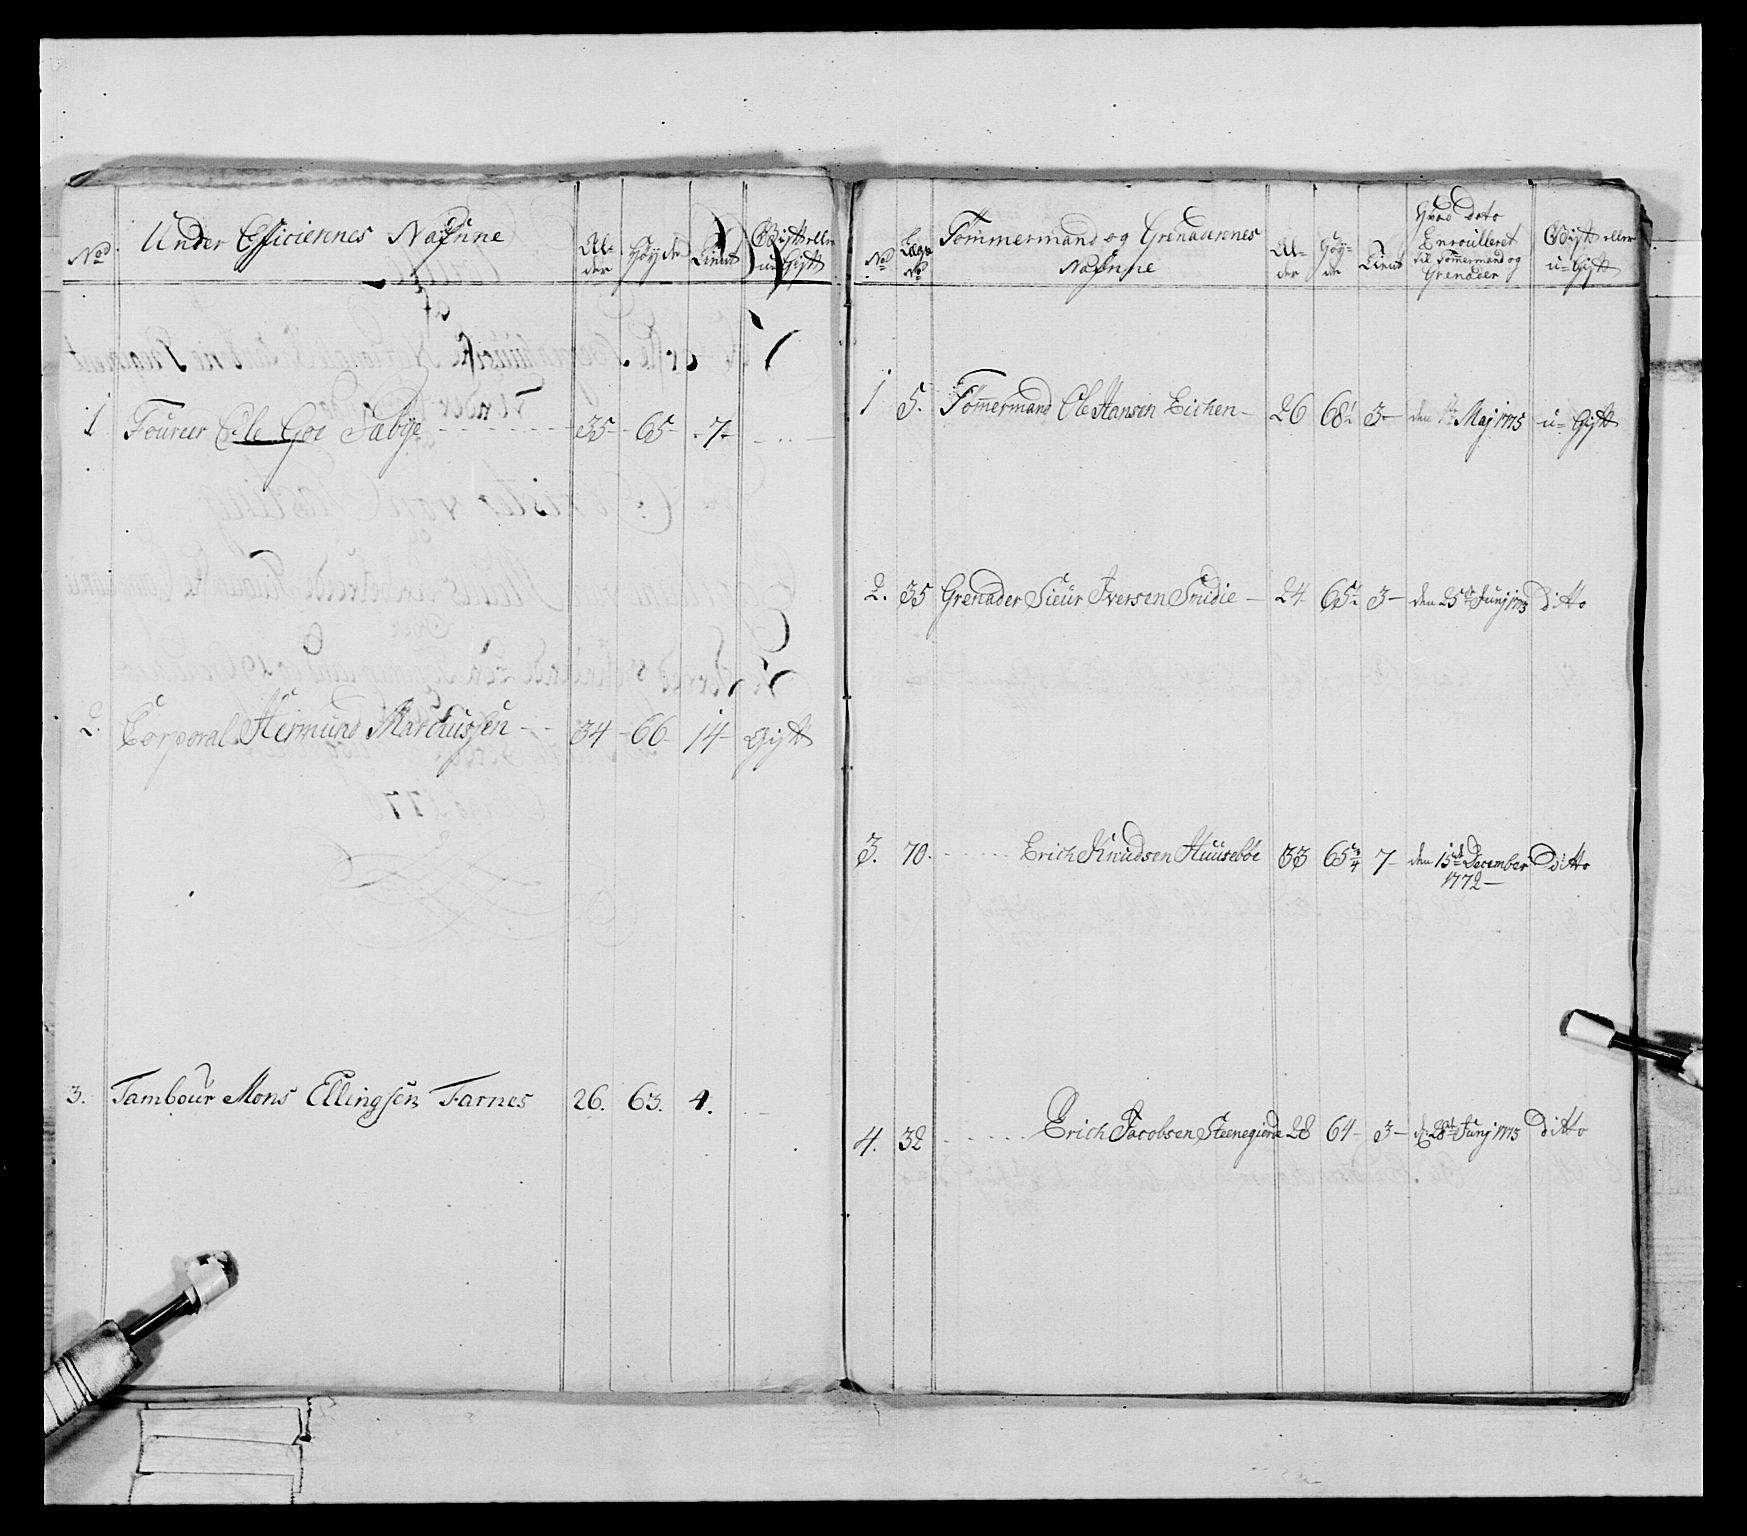 No
Under Officiernes Nafnne
Al-
der
Höyde
Tient
Gift eller
u-Gift
1 Foureer Ole Goe Sæbye - 35 - 65 - 7 -
2. Corporal Hermund Marcussen - 34 - 66 - 14 - Gift
3. Tambour Mons Ellingsen Farnes 26. 63. 4.
No
Lægs
No
Tömmermand og Grenaderernes
Nafnne
Al-
der
Höy-
de
Tient
Hvad dato
Enroulleret
til Tömmermand og
Grenader
Gift eller
u-Gift
1 5. Tömmermand Ole Hansen Eichen - 26 68½ 3 - den Maj 1775 u-Gift
2. 35 Grenader Siur Iversen Smidie - 24 65½ 3 - den 25de Junj 1773 ditto
3. 70. Erich Knudsen Huuseböe 33 65¾ 7 - den 15de December Ditto
1772 -
4. 32 Erich Jacobsen Steenegierde 28 64 - 3 - d: 28de Junj 1773 ditto